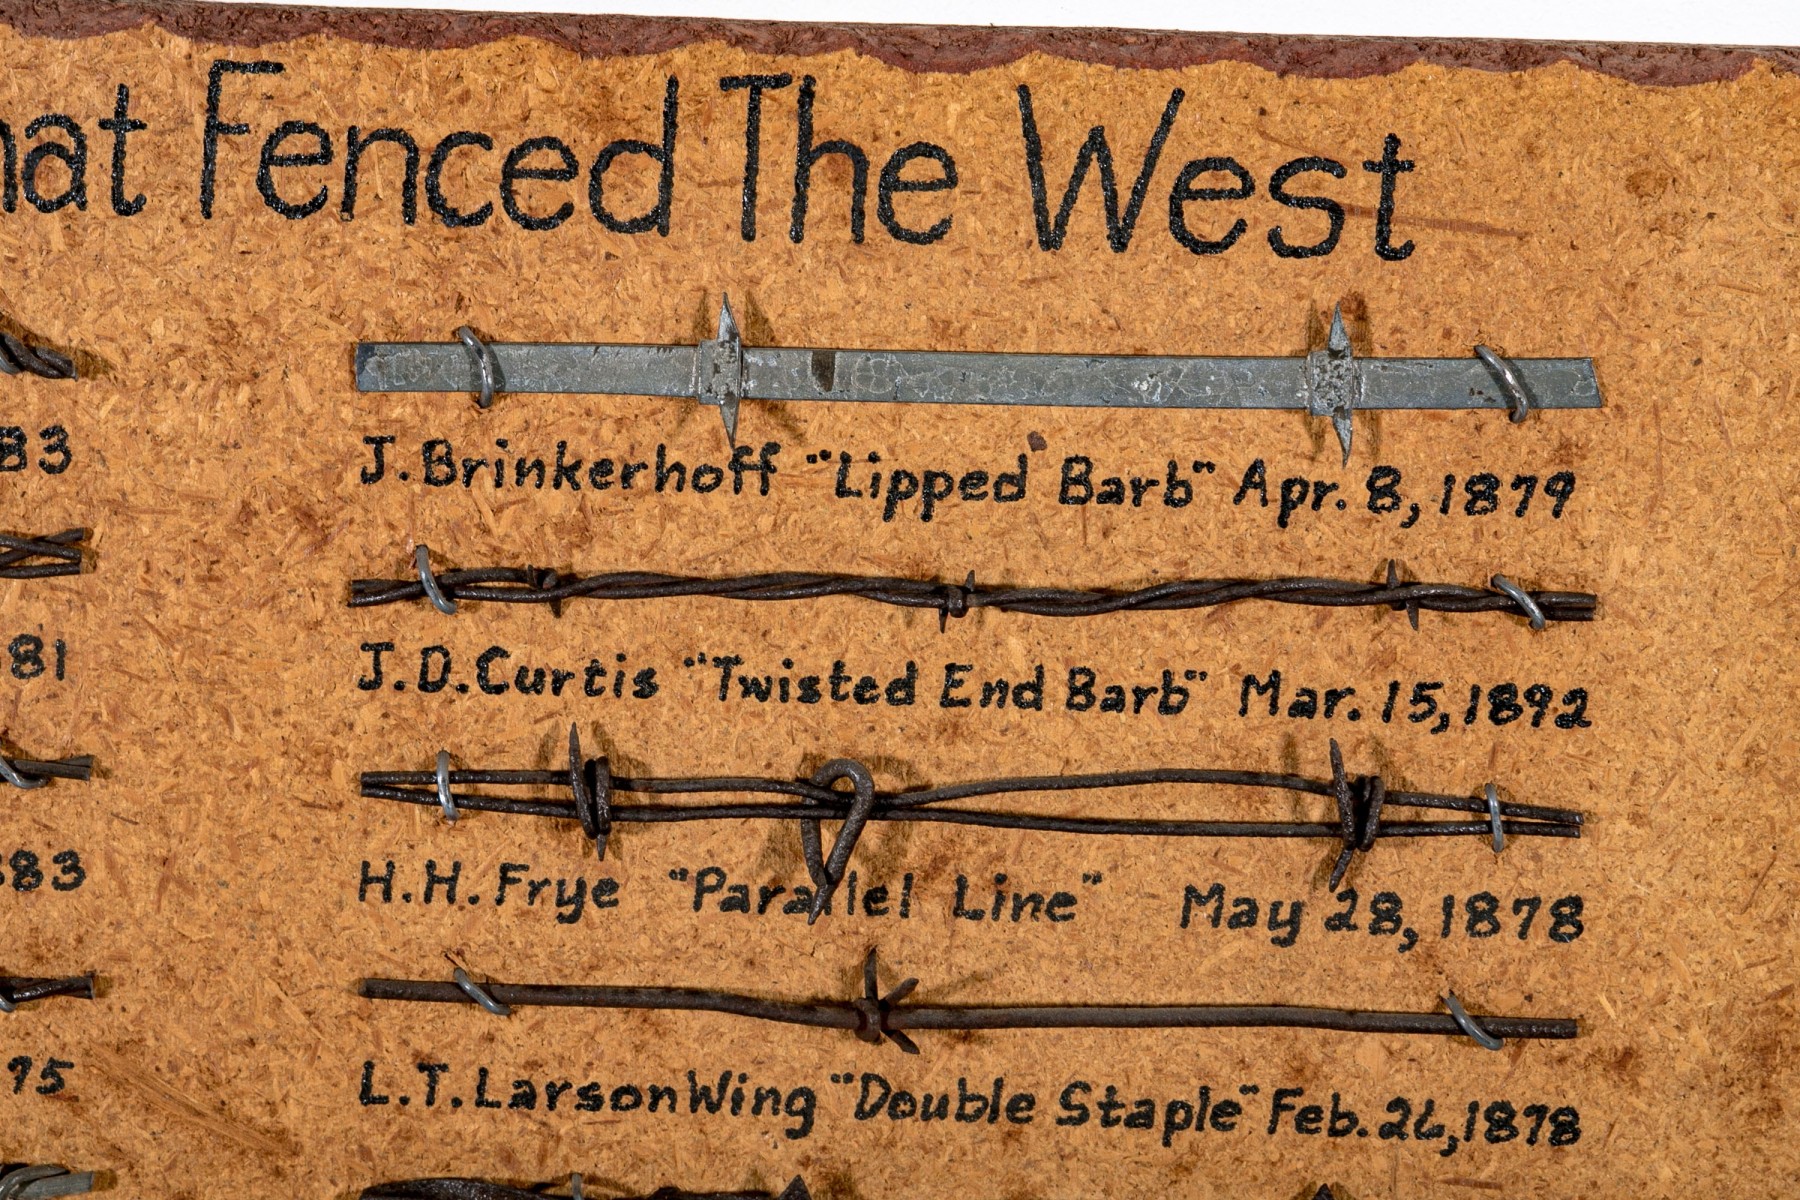 hat Fenced The West
83
J. Brinkerhoff "Lipped Barb" Apr. 8, 1879
81
J. D. Curtis "Twisted End Barb" Mar. 15, 1892
83
H. H. Frye "Parallel Line" May 28, 1878
75
L. T. Larson Wing "Double Staple" Feb. 26, 1878